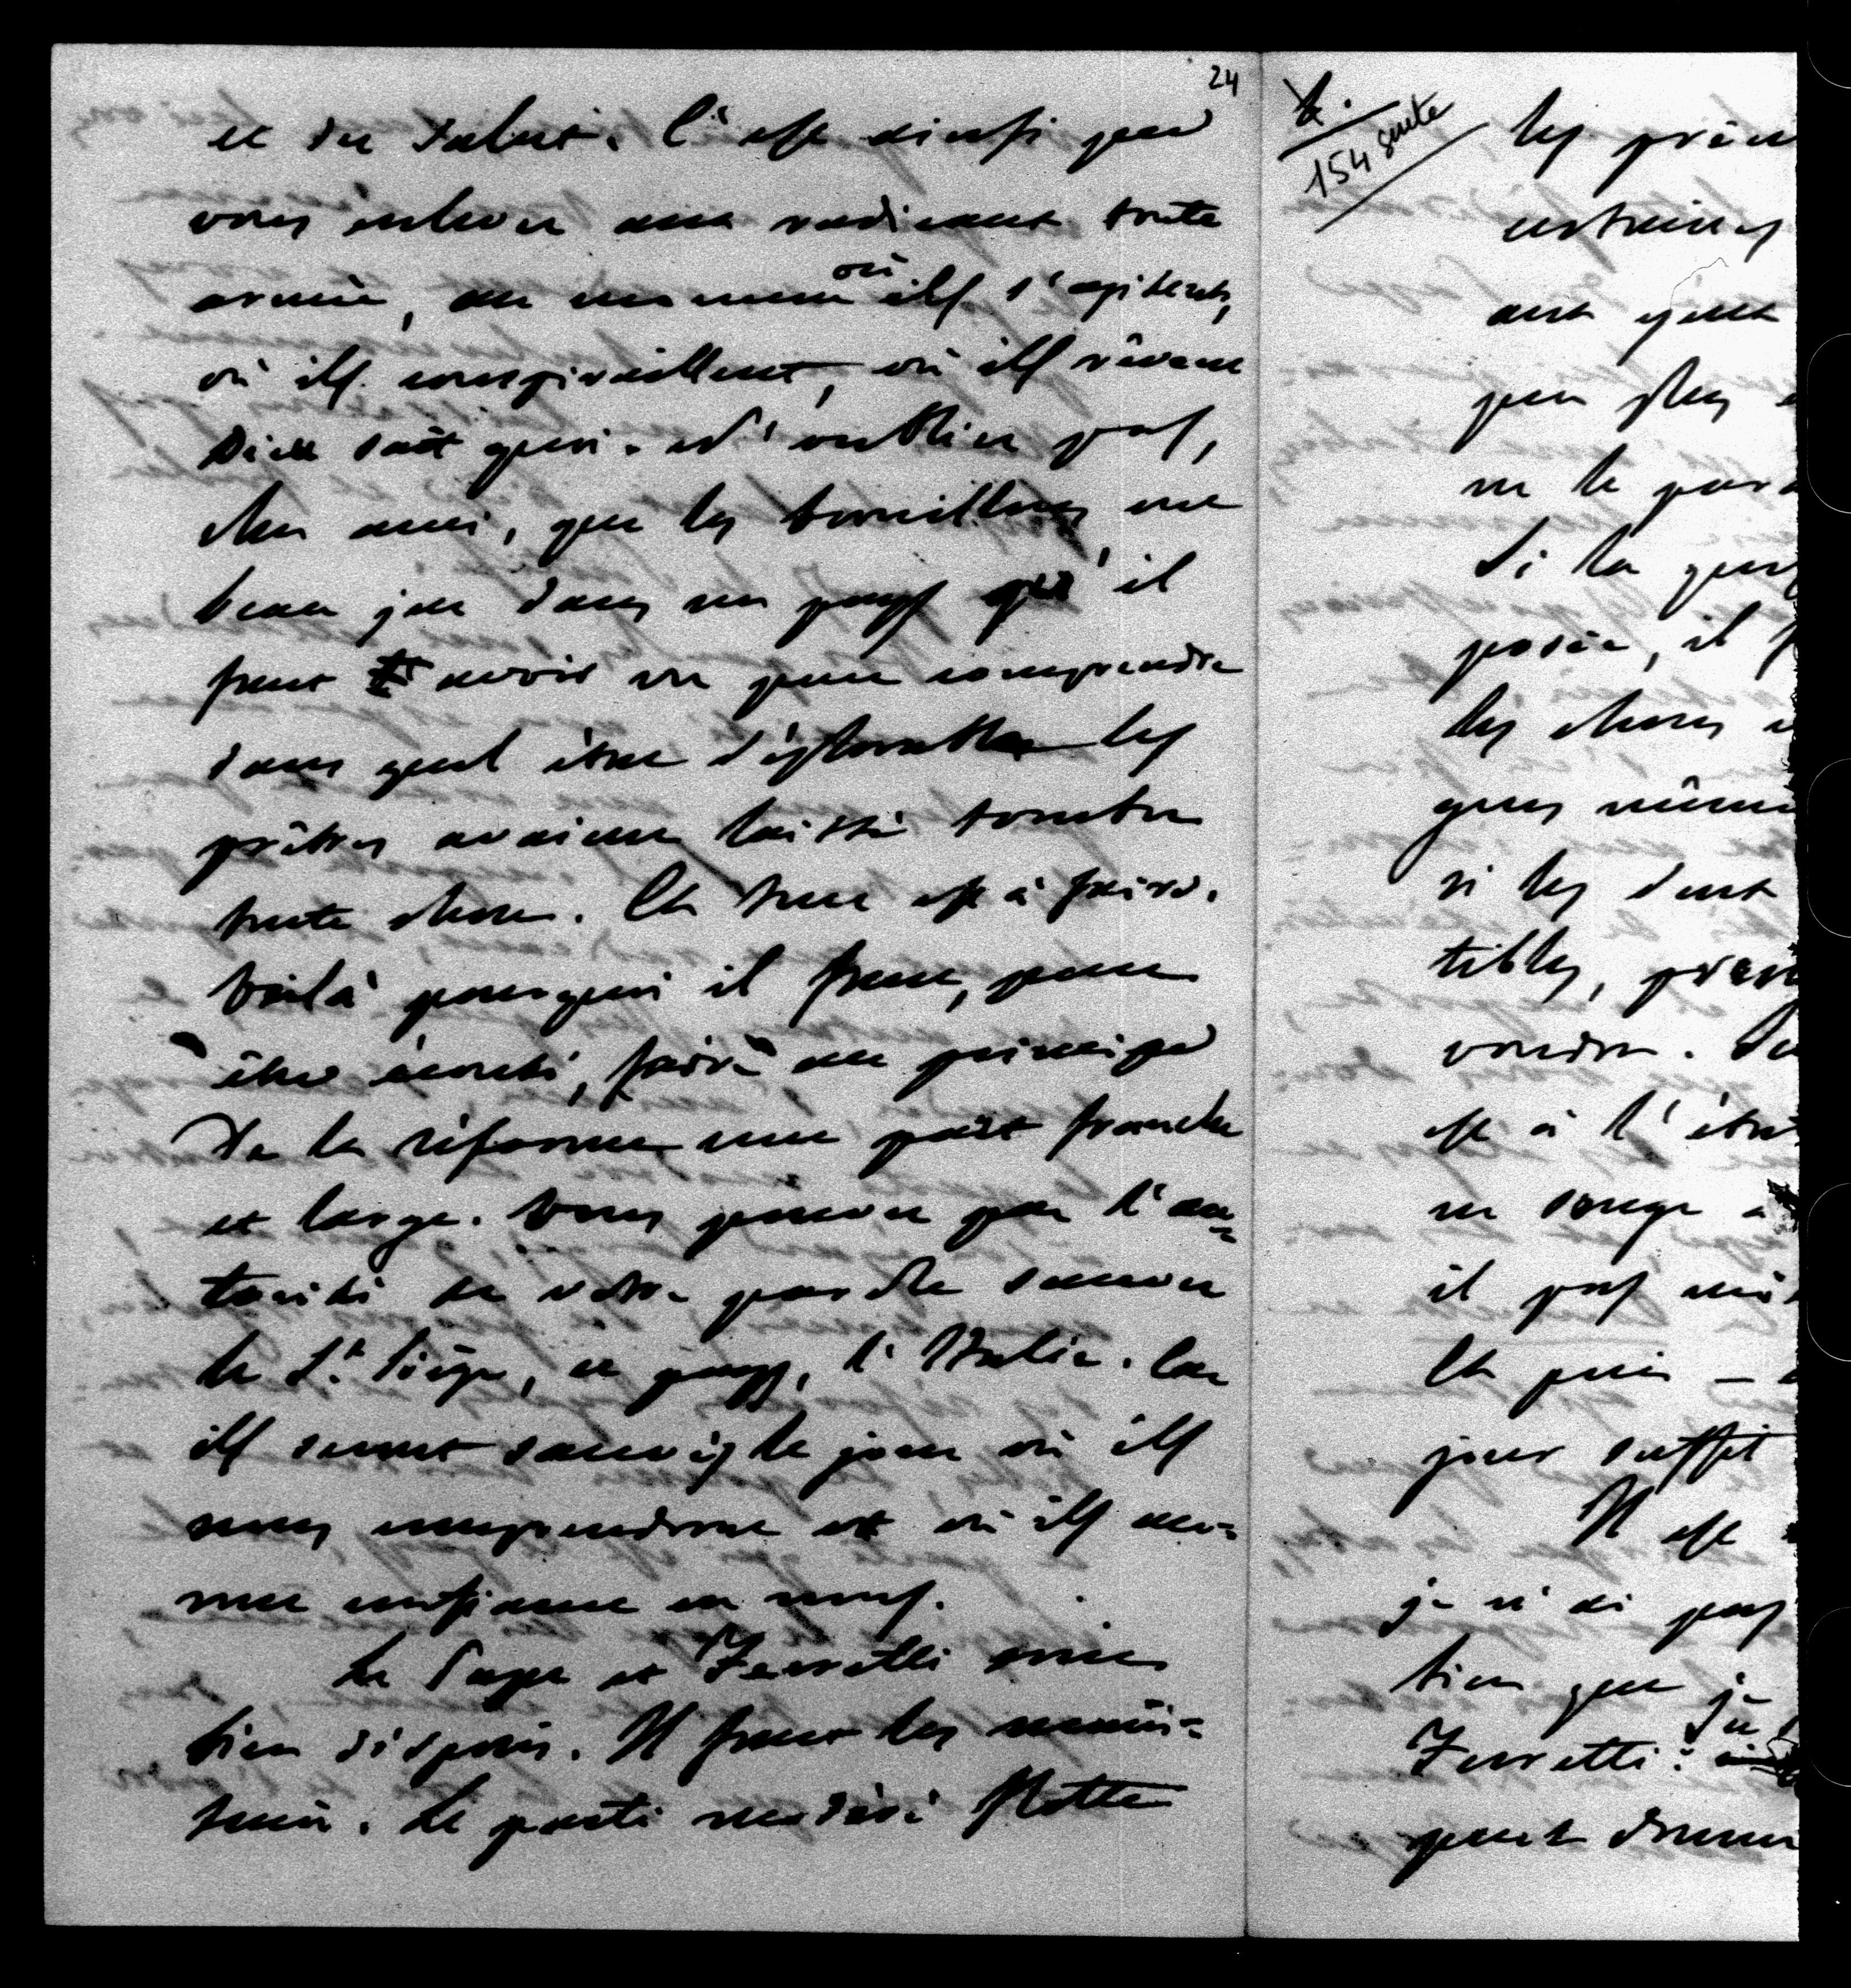 24
et du salut. C'est ainsi que
vous enlevez aux radicaux toute
armée, au moment où ils s'agitent,
où ils conspiraillent, où ils rêvent
Dieu sait quoi. N'oubliez pas,
cher ami, que les brouillons ont
beau jeu dans un pays qu'il
faut avoir vu pour comprendre
dans quel état déplorable les
prêtres avaient laissé tomber
toute chose. Et tout est à faire.
Voilà pourquoi il faut, pour
être écouté, faire au principe
de la réforme une part franche
et large. Vous pouvez par l'au=
torité de votre parole sauver
le St. Siége, ce pays, l'Italie. Car
ils seront sauvés le jour où ils
nous comprendront et où ils au=
ront confiance en nous.
Le Pape et Ferretti sont
bien disposés. Il faut les main=
tenir. Le parti modéré flotte
154 suite
les prin
ont
peu plus
ne le par
Si la ques
posée, il f
les choses
ques
si les deux
tibles,
voudra.
est à l'
ne songe a
il pas
Et puis —
jour suffit
Il est
je n'ai pas
bien que je
Ferretti :
peut donner